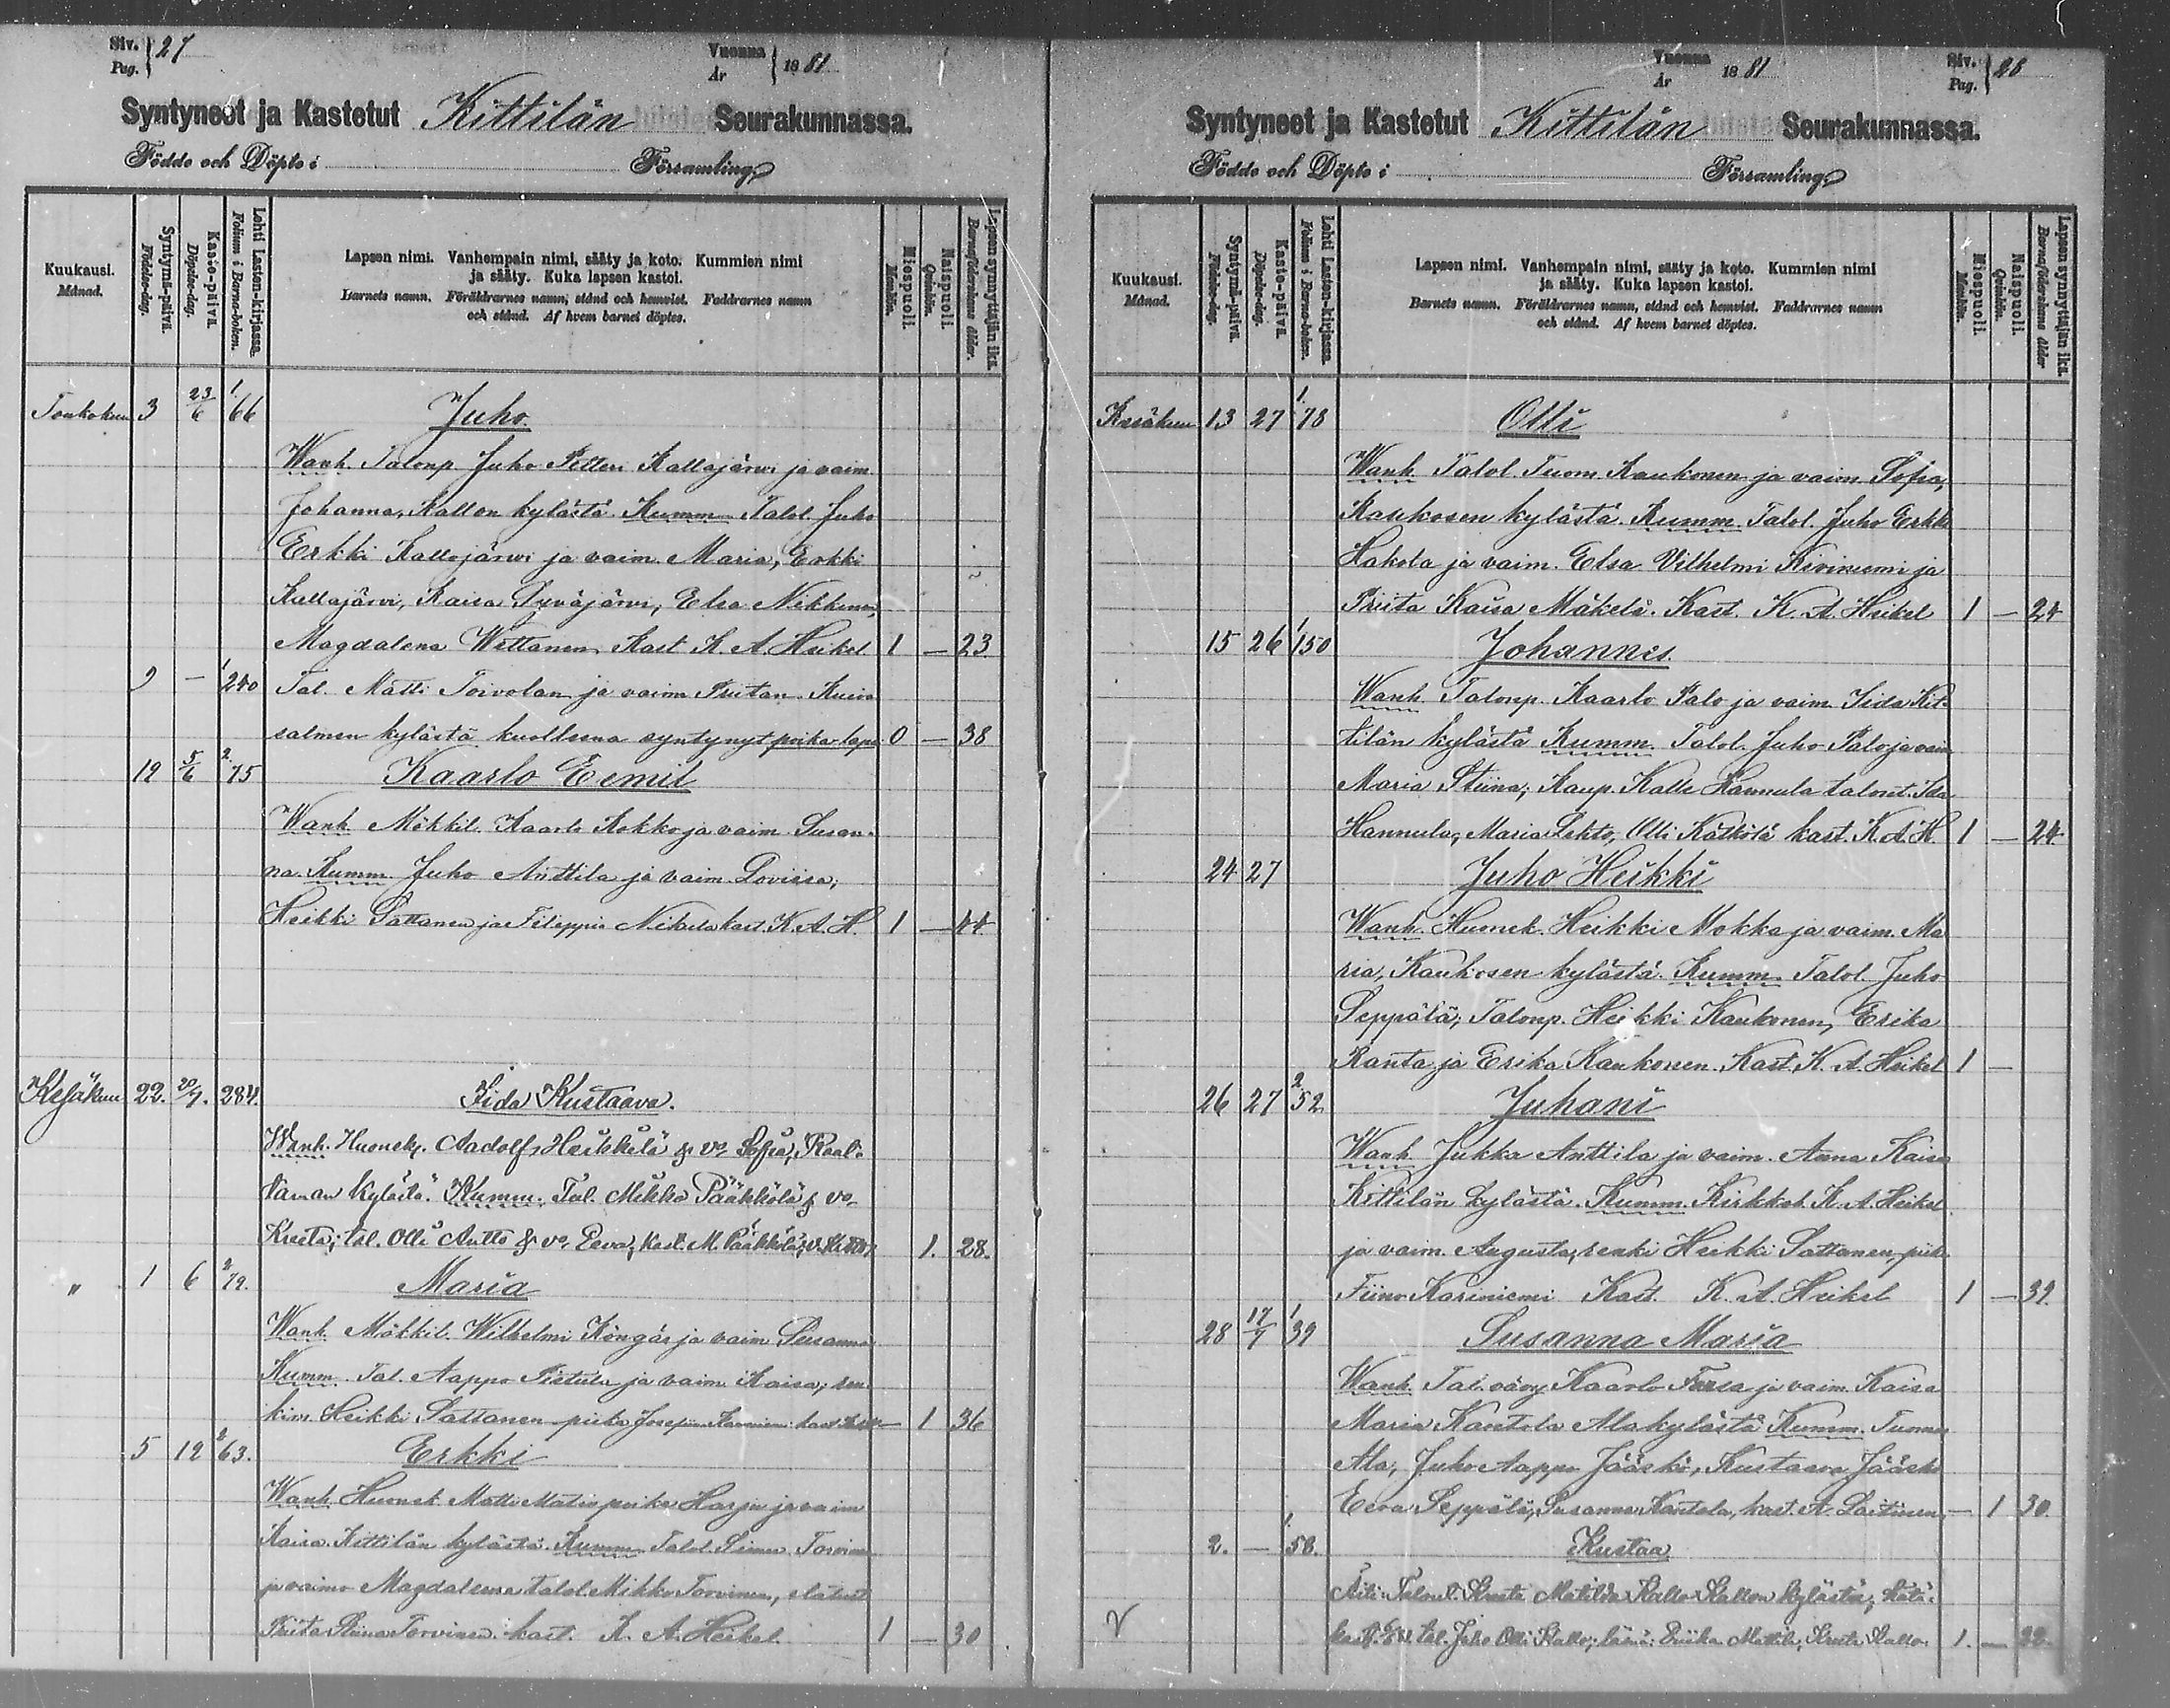 Siv. Pag. 27
Vuonna År 1881
Syntyneet ja Kastetut Kittilän Seurakunnassa.
Födde och Döpte i Församling
Kuukausi. Månad.
Syntymä-päivä. Födelse-dag.
Kaste-päivä. Döpelse-dag.
Lehti Lasten-kirjassa. Folium i Barna-boken.
Lapsen nimi. Vanhempain nimi, sääty ja koto. Kummien nimi
ja sääty. Kuka lapsen kastoi.
Barnets namn. Föräldrarnes namn, stånd och hemvist. Faddrarnes namn
och stånd. Af hvem barnet döptes.
Miespuoli. Mankön.
Naispuoli. Qvinkön.
Lapsen synnyttäjän ikä. Barnaföderskans ålder.
Toukokuu 3 23/6 1/66 Juho
Wanh. Talonp. Juho Petteri Kallojärwi ja vaim.
Johanna, Kallon kylästä. Kumm. Talol. Juho
Erkki Kallojärwi ja vaim. Maria, Erkki
Kallojärvi, Kaisa Syväjärvi, Elsa Nikkinen,
Magdalena Wettanen. Kast. K. A. Heikel 1 — 23
9 — 1/240 Tal. Matti Toivolan ja vaim. Priitan
salmen kylästä kuolleena syntynyt poika-lapsi 0 — 38
19 5/6 2/75 Kaarlo Eemil
Wanh. Mökkil. Kaarlo Kokko ja vaim. Susan-
na. Kumm. Juho Anttila ja vaim. Loviisa,
Heikki Sattanen ja Filippus kast. K. A. H. 1 — 44
Kesäkuu 22. 20/7. 284. Iida Kustaava.
Wanh. Huonem. Aadolf Heikkilä & vo. Sofia,
kylästä. Kumm. Tal. Mikko Pääkkölä & vo.
Kreeta; tal. Olli Antto & vo. Eeva, Kast. M. Pääkkölä, 1. 28.
" 1 6 2/79. Maria
Wanh. Mökkil. Wilhelmi Köngäs ja vaim. Susanna
Kumm. Tal. Aappo Pistula ja vaim. Kaisa, ren-
kim. Heikki Sattanen piika Josefina — 1 36
5 12 2/63. Erkki
Wanh. Huonek. Matti Matin poika Harju ja vaim.
Kaisa. Kittilän kylästä. Kumm. Talol. Simu Torvinen
ja vaimo Magdaleena talol. Mikko Torvinen,
Priita Stiina Torvinen. kast. K. A. Heikel. 1 — 30
Vuonna År 1881
Siv. Pag. 28
Syntyneet ja Kastetut Kittilän Seurakunnassa.
Födde och Döpte i Församling
Kuukausi. Månad.
Syntymä-päivä. Födelse-dag.
Kaste-päivä. Döpelse-dag.
Lehti Lasten-kirjassa. Folium i Barna-boken.
Lapsen nimi. Vanhempain nimi, sääty ja koto. Kummien nimi
ja sääty. Kuka lapsen kastoi.
Barnets namn. Föräldrarnes namn, stånd och hemvist. Faddrarnes namn
och stånd. Af hvem barnet döptes.
Miespuoli. Mankön.
Naispuoli. Qvinkön.
Lapsen synnyttäjän ikä. Barnaföderskans ålder
Kesäkuu 13 27 1/78 Olli
Wanh. Talol. Tuom. Kaukonen ja vaim. Sofia,
Kaukosen kylästä. Kumm. Talol. Juho Erkki
Hakola ja vaim. Elsa Vilhelmi Kiviniemi ja
Priita Kaisa Mäkelä. Kast. K. A. Heikel 1 — 24
15 26 1/150 Johannes.
Wanh. Talonp. Kaarlo Palo ja vaim. Iida Kit-
tilän kylästä Kumm. Talol. Juho Palo ja vaim
Maria Stiina; Kaup. Kalle Hannula talont. Ida
Hannula, Maria Lehto, Olli Kätkölä kast. K. A. H. 1 — 24.
24 27 Juho Heikki
Wanh. Huonek. Heikki Mokko ja vaim. Ma
ria, Kaukosen kylästä. Kumm. Talol. Juho
Seppälä, Talonp. Heikki Kaukonen, Erika
Ranta ja Erika Kaukonen. Kast. K. A. Heikel 1 —
26 27 2/52. Juhani
Wanh. Jukka Anttila ja vaim. Anna Kaisa
Kittilän kylästä. Kumm. Kirkkoh. K. A. Heikel
ja vaim. Augusta, renki Heikki Sattanen, piik.
Fiina Kariniemi Kast. K. A. Heikel 1 — 39.
28 17/7 1/39 Susanna Maria
Wanh. Tal. vävy Kaarlo ja vaim. Kaisa
Maria Kantola Alakylästä Kumm. Tuomas
Ala, Juho Aappo Jääskö, Kustaava Jääskö
Eeva Seppälä, Susanna Kantola, kast. A. Laitinen — 1 30.
2. — 1/58. Kustaa
Äiti: Talont. Kreeta Matilda Kallo Kallon kylästä;
tal. Juho Olli Kallo; läsnä: Priika Mattila, Kreeta Kallo. 1. — 22.